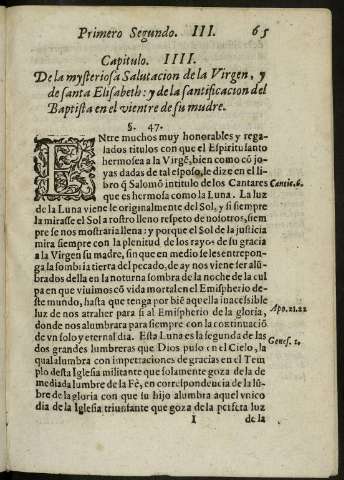 Primero Segundo. III. 65
Capitulo. IIII.
De la mysteriosa Salutacion de la Virgen, y
de santa Elisabeth: y de la santificacion del
Baptista en el vientre de su madre.
§. 47.
ENtre muchos muy honorables y rega-
lados titulos con que el Espiritu santo
hermosea a la Virgẽ, bien como cõ jo-
yas dadas de tal esposo, le dize en el li-
bro q̃ Salomõ intitulo de los Cantares Cantic. 6.
que es hermosa como la Luna. La luz
de la Luna viene le originalmente del Sol, y si siempre
la mirasse el Sol a rostro lleno respeto de nosotros, siem
pre se nos mostraria llena: y porque el Sol de la justicia
mira siempre con la plenitud de los rayos de su gracia
a la Virgen su madre, sin que en medio se les entrepon-
ga la sombria tierra del pecado, de ay nos viene ser alũ-
brados della en la noturna sombra de la noche de la cul
pa en que viuimos cõ vida mortal en el Emispherio de-
ste mundo, hasta que tenga por biẽ aquella inacessible
luz de nos atraher para si al Emispherio de la gloria, Apo. 21. 22
donde nos alumbrara para siempre con la continuaciõ
de vn solo y eternal dia. Esta Luna es la segunda de las
dos grandes lumbreras que Dios puso en el Cielo, la Genes. 1.
qual alumbra con impetraciones de gracias en el Tem
plo desta Iglesia militante que solamente goza de la de
mediada lumbre de la Fè, en correspondencia de la lũ-
bre de la gloria con que su hijo alumbra aquel vnico
dia de la Iglesia triunfante que goza de la perfeta luz
I de la